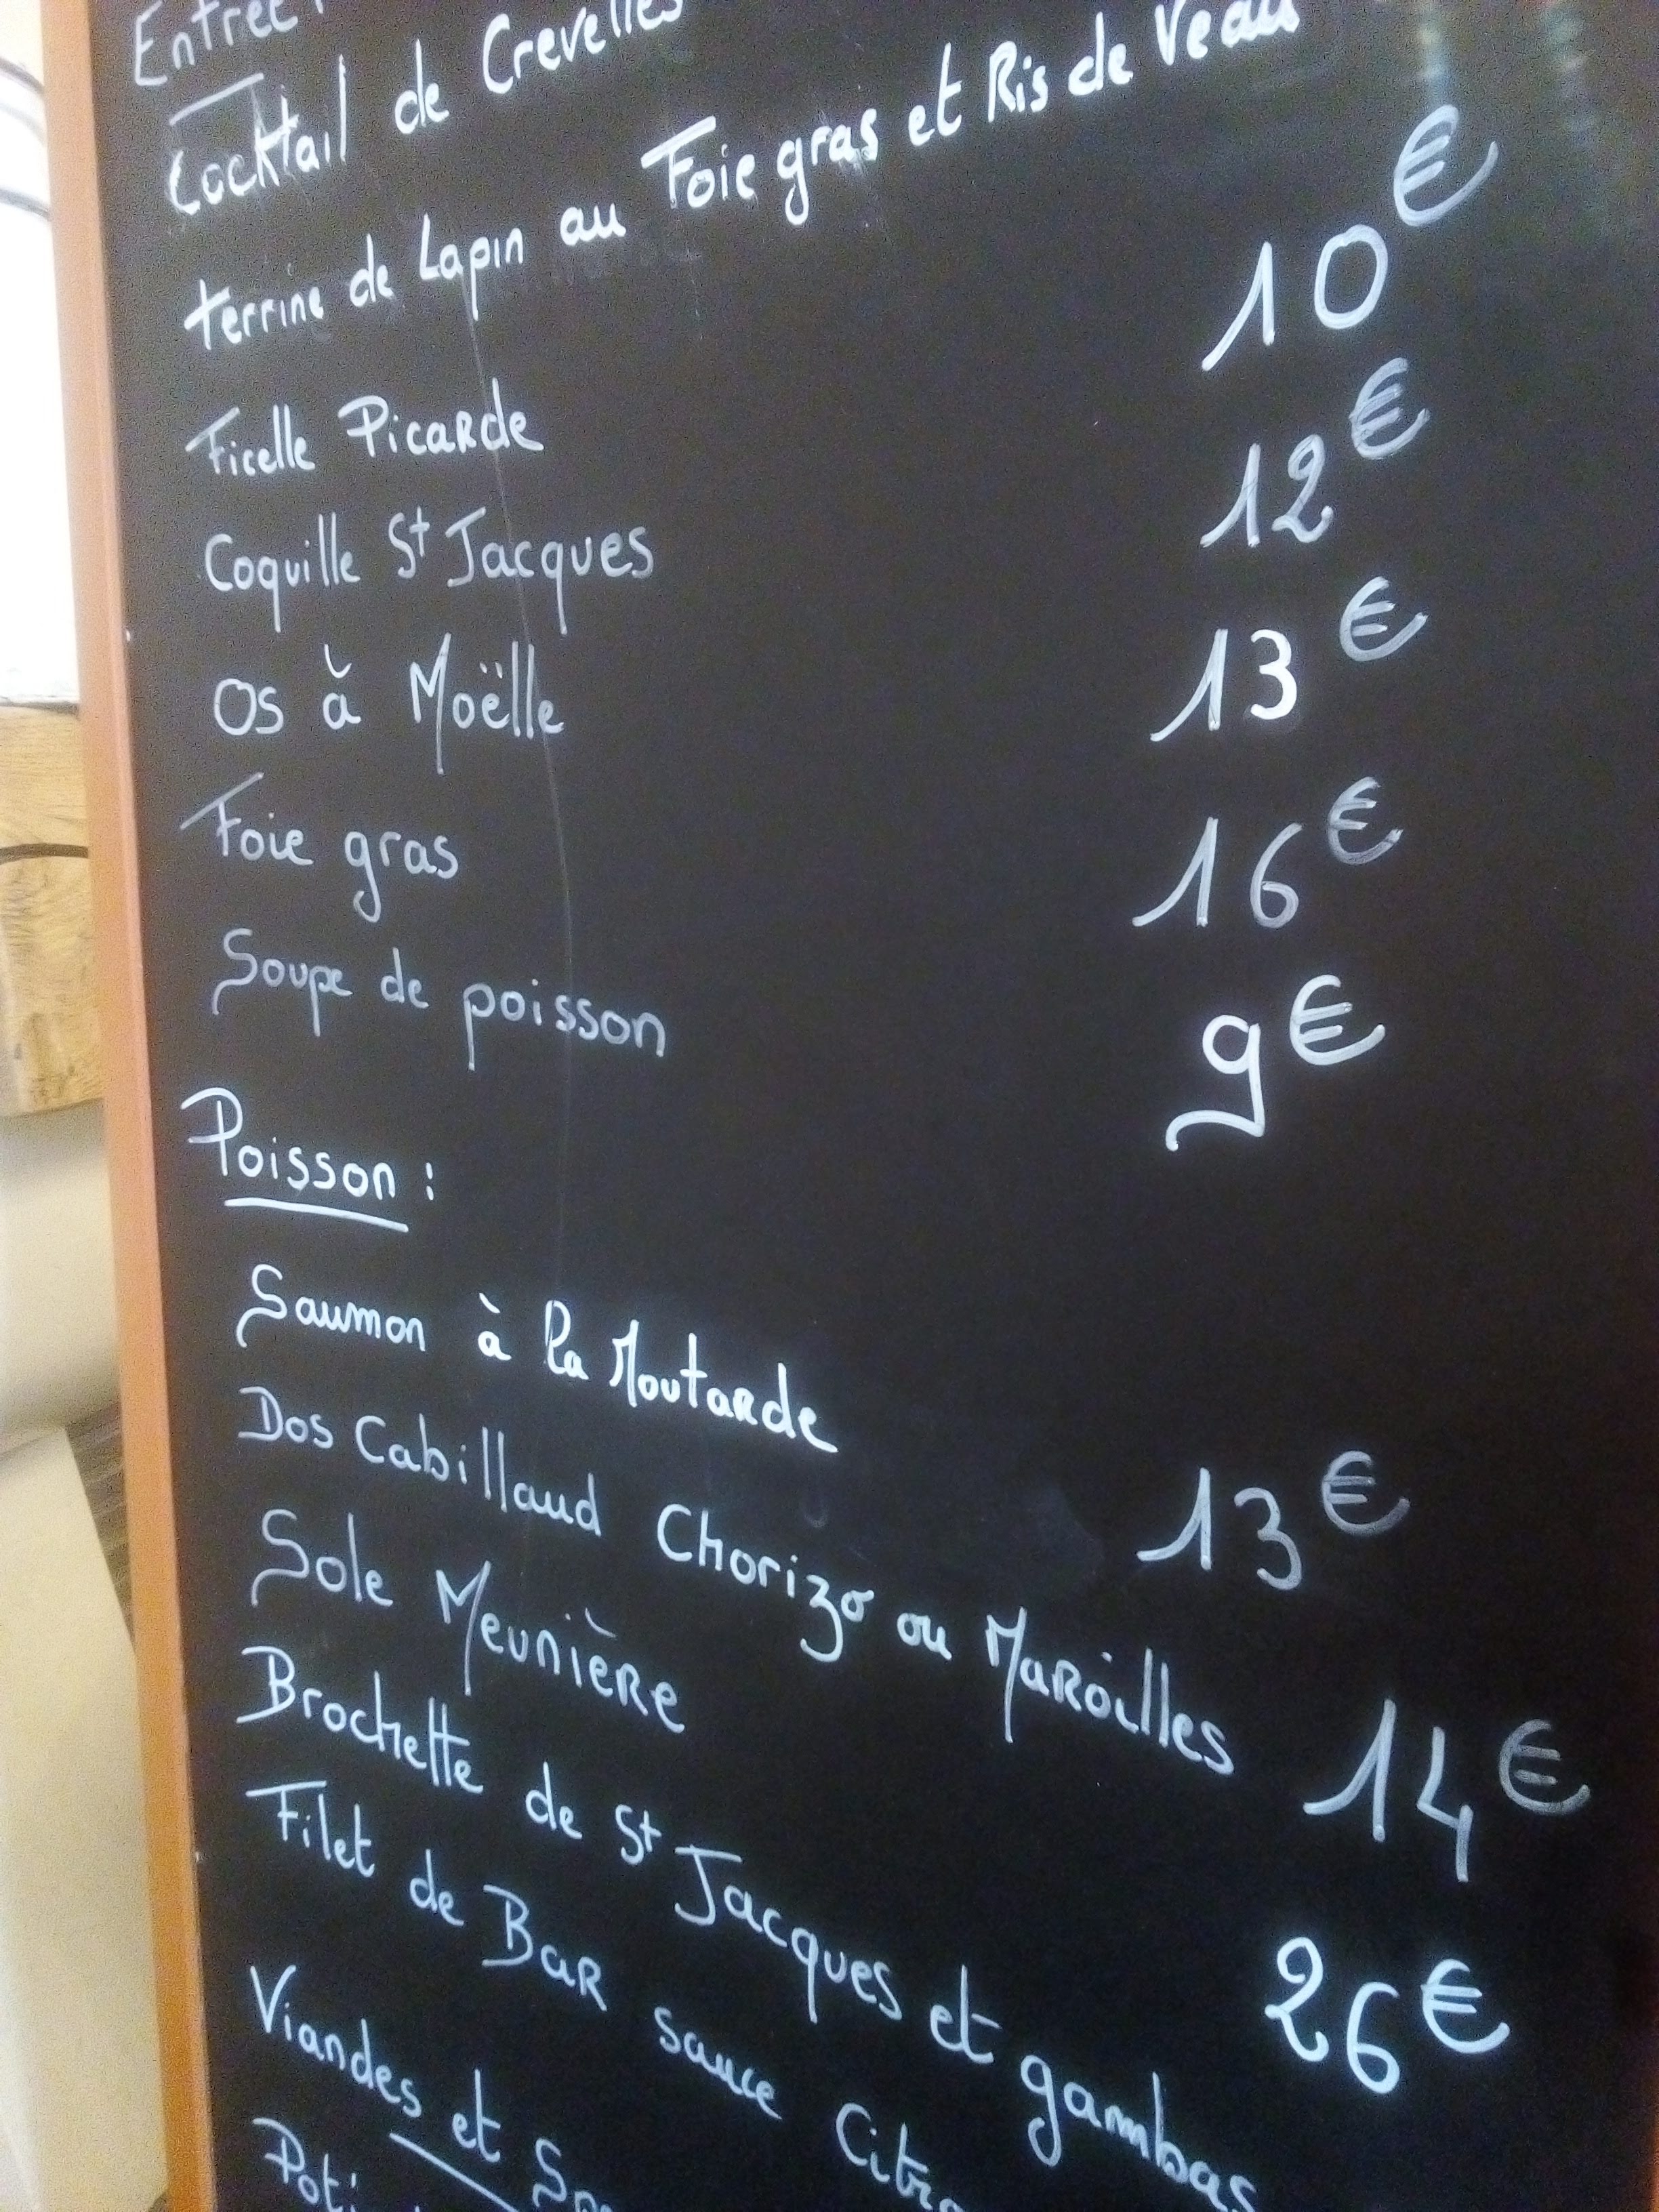 Entrée:
Cocktail de Crevettes
terrine de Lapin au Foie gras et Ris de Veau
Ficelle Picarde 10€
Coquille St Jacques 12€
Os à Moëlle 13€
Foie gras 16€
Soupe de poisson 9€
Poisson :
Saumon à la Moutarde 13€
Dos Cabillaud Chorizo ou Maroilles 14€
Sole Meunière 26€
Brochette de St Jacques et gambas
Filet de Bar sauce
Viandes et